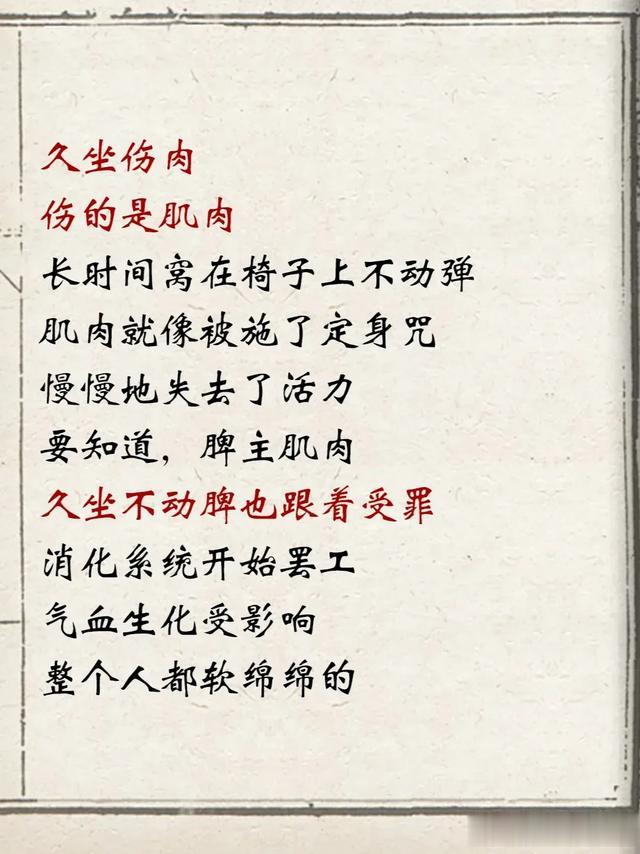 久坐伤肉
伤的是肌肉
长时间窝在椅子上不动弹
肌肉就像被施了定身咒
慢慢地失去了活力
要知道，脾主肌肉
久坐不动脾也跟着受罪
消化系统开始罢工
气血生化受影响
整个人都软绵绵的